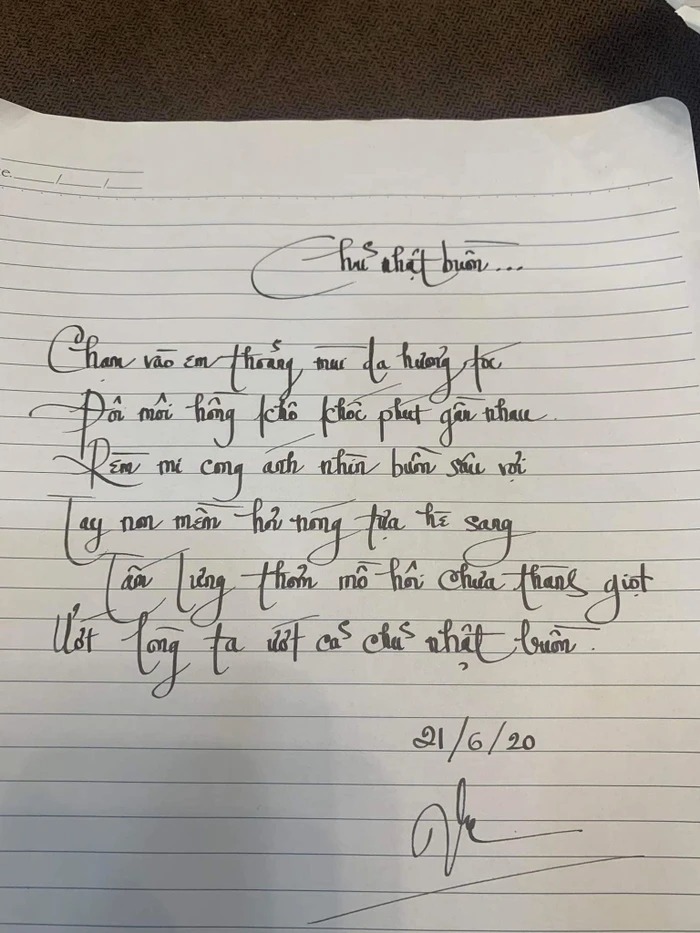 e. / /
Chủ nhật buồn...
Chạm vào em thoảng mùi da hương tóc
Đôi môi hồng khô khốc phút gần nhau
Rèm mi cong anh nhìn buồn sâu vợi
Tay non mềm hơi nóng tựa hè sang
Tấm lưng thơm mồ hôi chưa thành giọt
Ướt lòng ta ướt cả chủ nhật buồn.
21/6/20